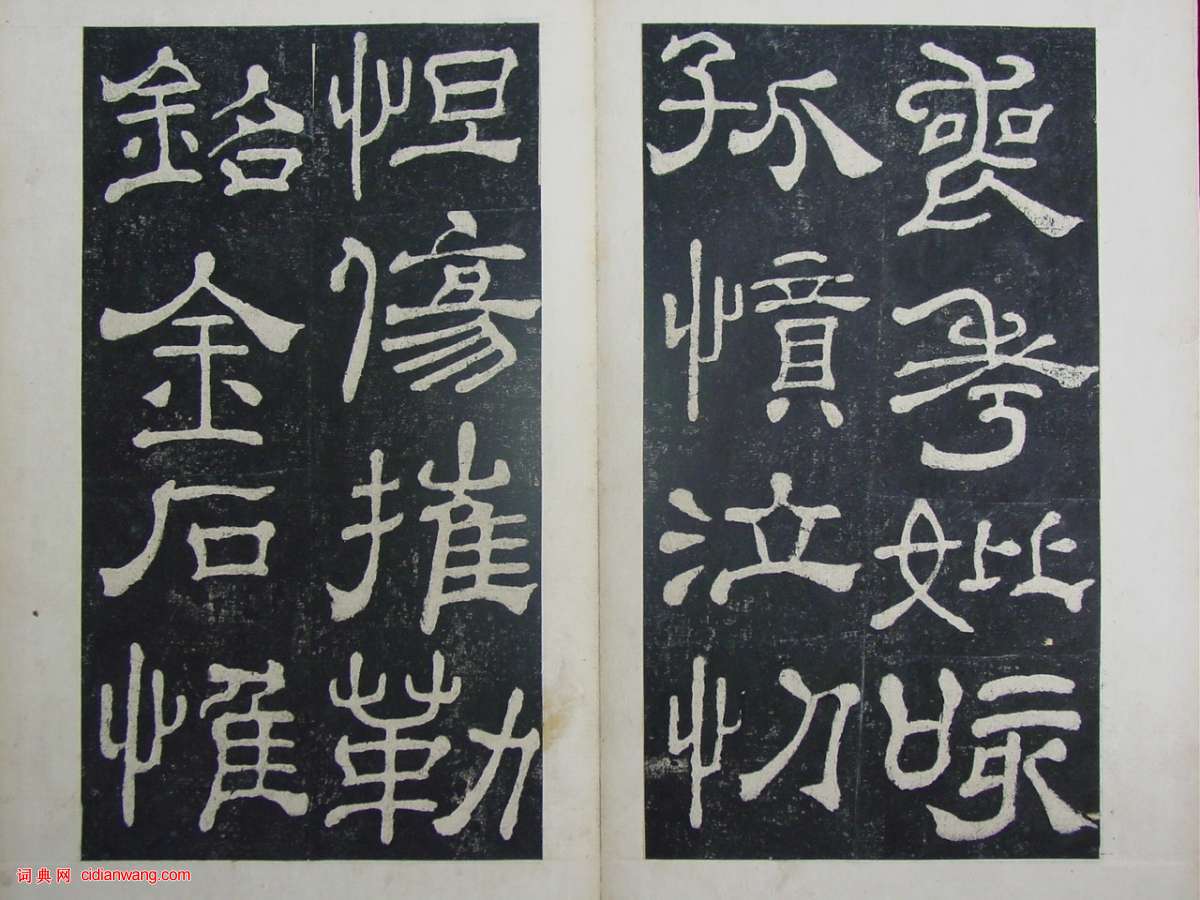 喪考妣咳
孤憤泣忉
怛傷摧勒
銘金石惟
词典网 cidianwang.com